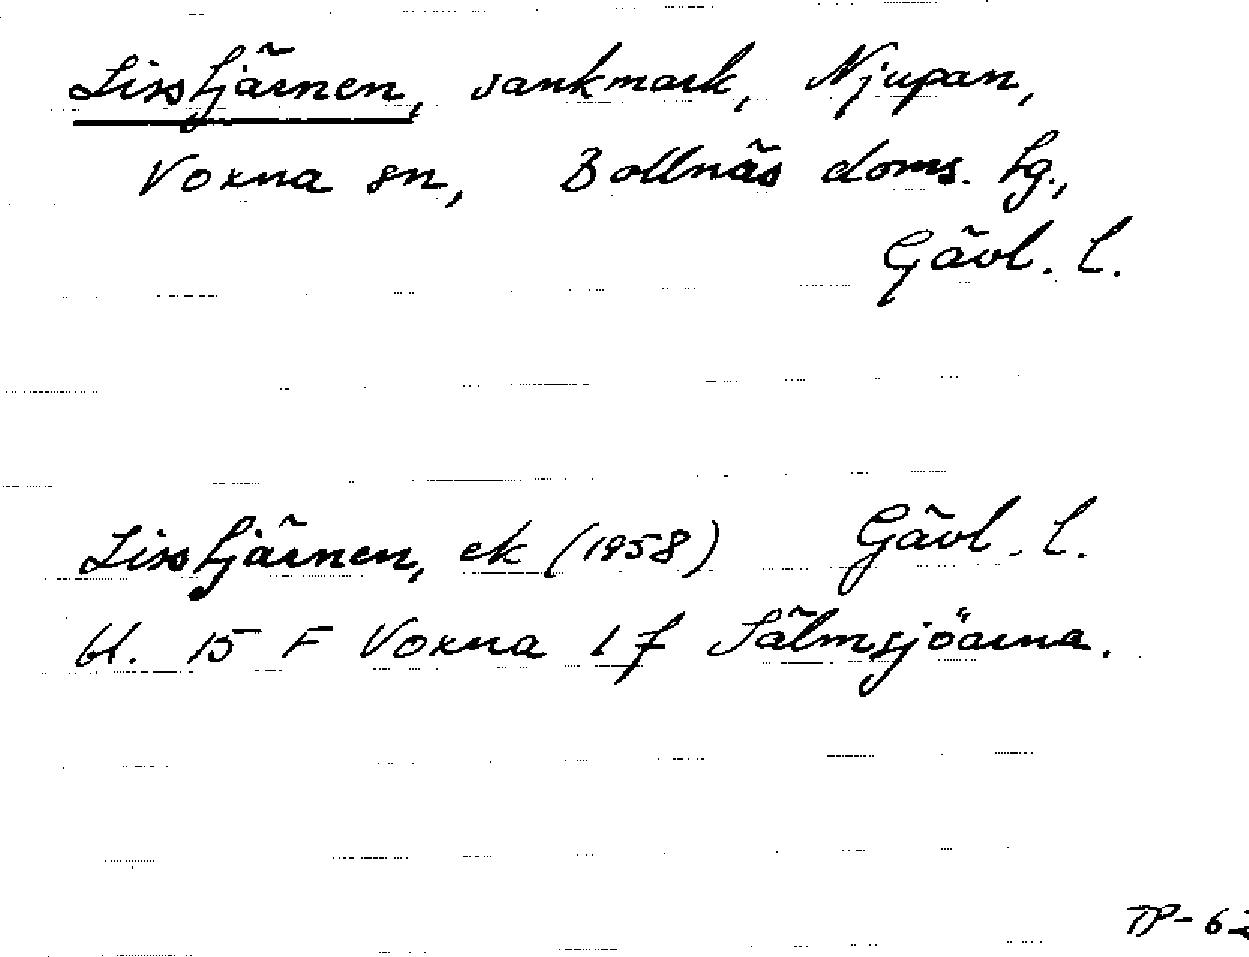 Lisstjärnen, sankmark, Njupan,
Voxna sn, Bollnäs doms. tg.,
Gävl. l.
Lisstjärnen, ek (1958) Gävl. l.
bl. 15 F Voxna 1 f Sälmsjöarna.
TP-62